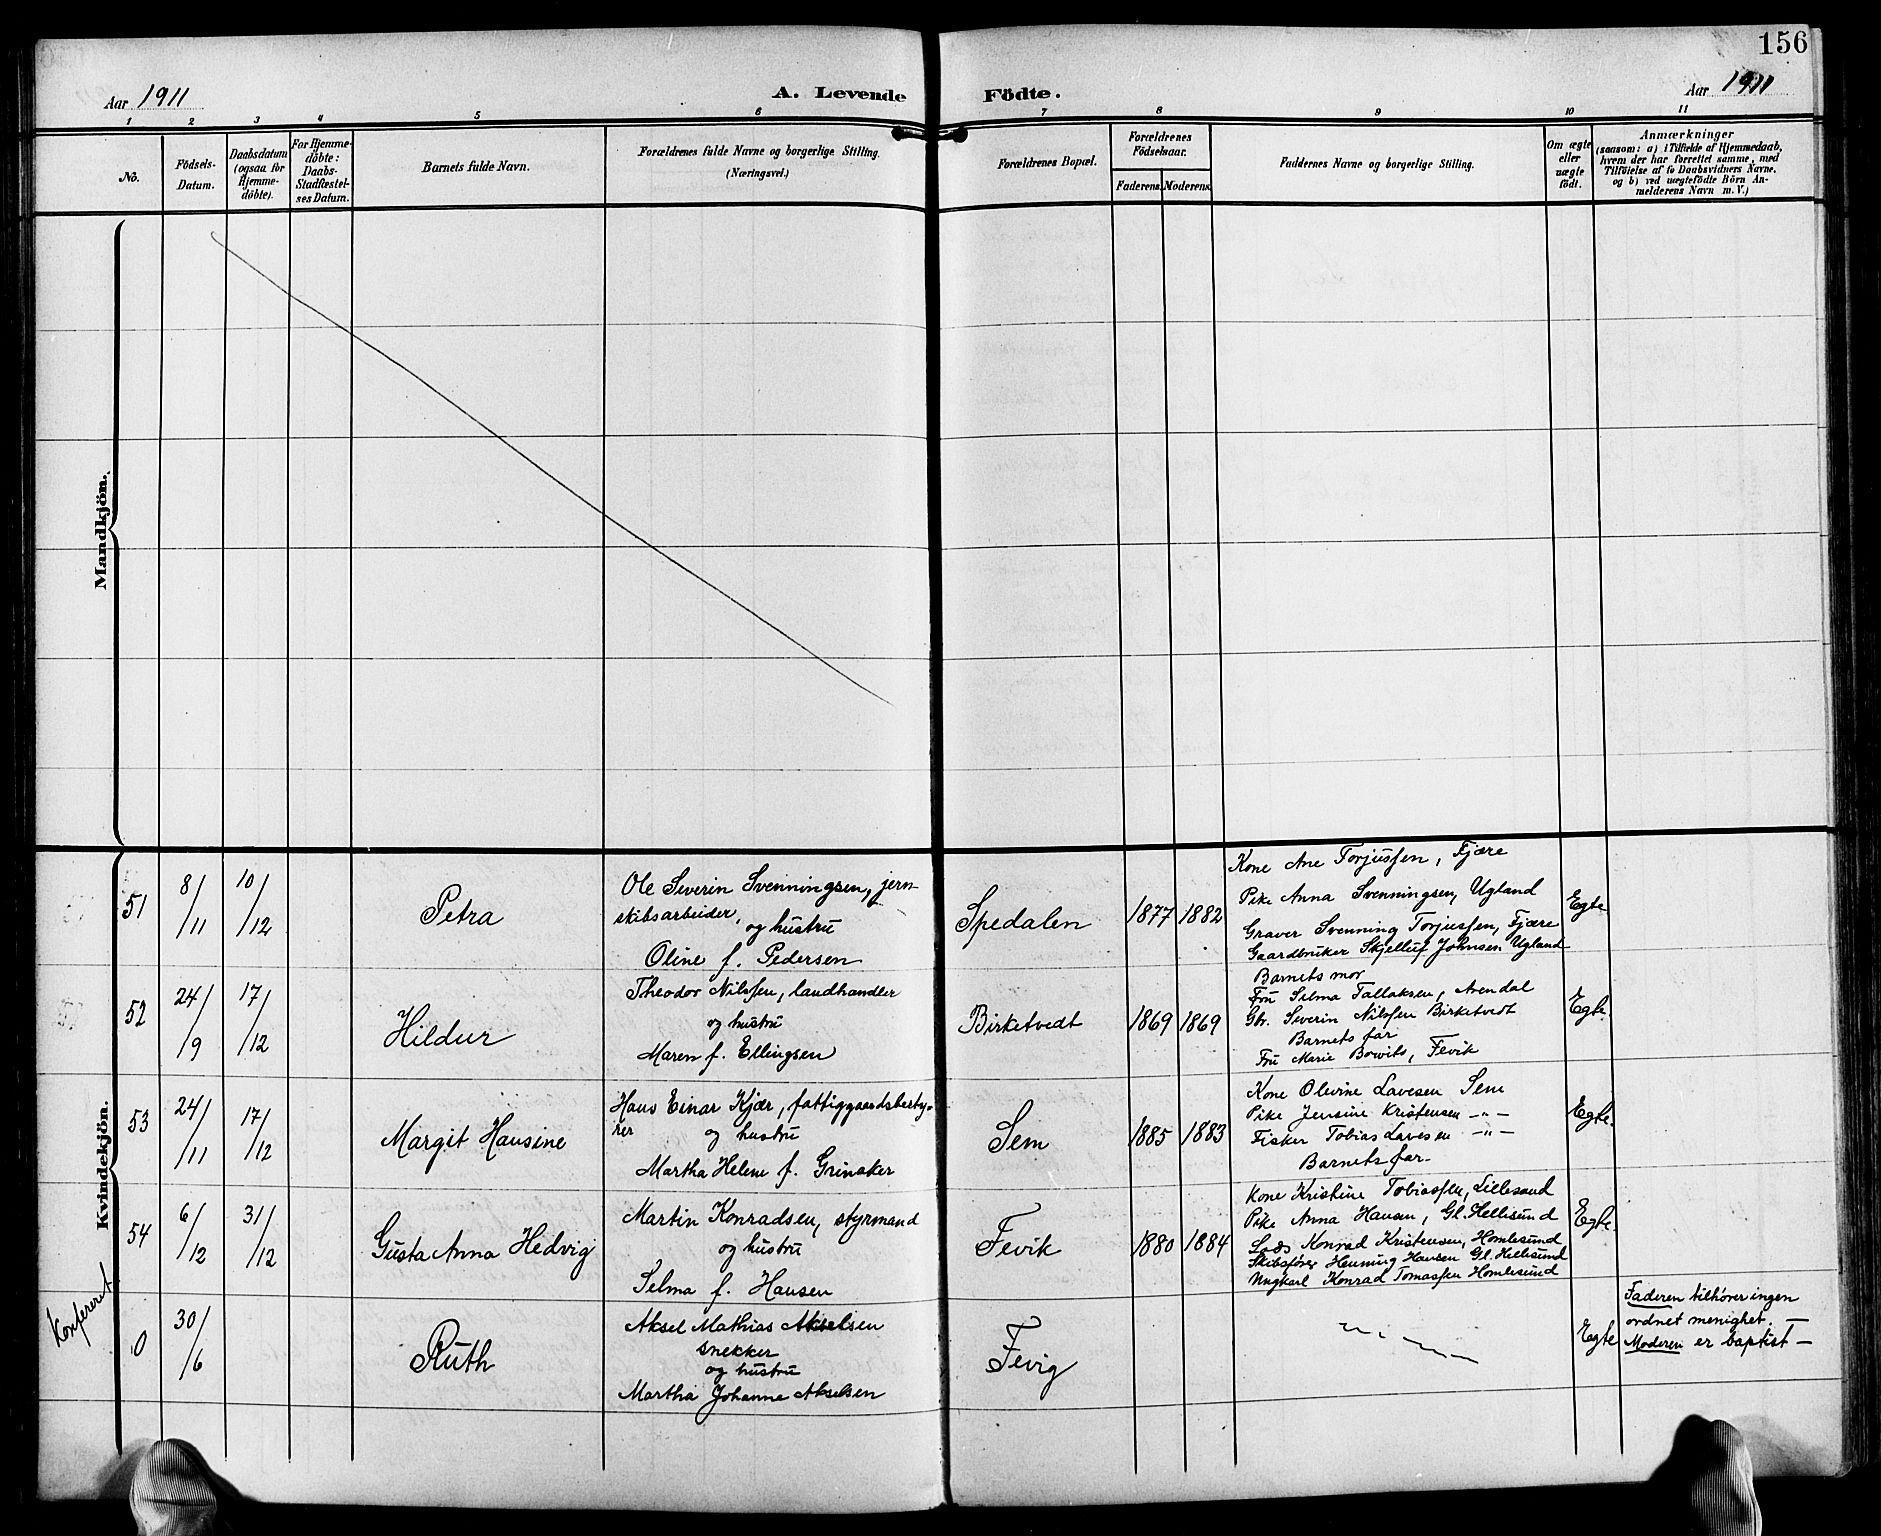 156
Aar 1911
A. Levende Födte.
Aar 1911
1 2 3 4 5 6 7 8 9 10 11
No.
Födsels-
Datum.
Daabsdatum
(ogsaa for
Hjemme-
döbte).
For Hjemme-
döbte:
Daabs-
Stadfæstel-
ses Datum.
Barnets fulde Navn.
Forældrenes fulde Navne og borgerlige Stilling.
(Næringsvei.)
Forældrenes Bopæl.
Forældrenes
Födselsaar.
Faderens. Moderens.
Faddernes Navne og borgerlige Stilling.
Om ægte
eller
uægte
födt.
Anmærkninger
(saasom: a) i Tilfælde af Hjemmedaab,
hvem der har forrettet samme, med
Tilföielse af to Daabsvidners Navne,
og b) ved uægtefödte Börn An-
melderens Navn m. V.)
Mandkjön.
Kvindekjön.
51
8/11
10/12
Petra
Ole Severin Svenningsen, jern-
skibsarbeider,
og hustru
Oline f. Pedersen
Spedalen
1877 1882
Kone Ane Torjussen, Fjære
Pike Anna Svenningsen, Ugland
Graver Svenning Torjussen, Fjære
Gaardbruker Skjelluf Johnsen Ugland
Egte
52
24/9
17/12
Hildur
Theodor Nilssen, landhandler
og hustru
Maren f. Ellingsen
Birketvedt
1869 1869
Barnets mor
Fru Silma Tallaksen, Arendal
Gbr. Severin Nilssen Birketvedt
Barnets far
Fru Marie Bowits, Fevik
Egte.
53
24/11
17/12
Margit Hansine
Hans Einar Kjær, fattiggaardsbesty-
rer
og hustru
Martha Helene f. Grinaker
Sem
1885 1883
Kone Olevine Lavesen Sem
Pike Jensine Kristensen -"-
Fisker Tobias Lavesen -"-
Barnets far-
Egte.
54
6/12
31/12
Gusta Anna Hedvig
Martin Konradsen, styrmand
og hustru
Selma f. Hansen
Fevik
1880 1884
Kone Kristine Tobiassen, Lillesand
Pike Anna Hansen, Gl. Hellesund
Lods Konrad Kristensen, Homlesund
Skibsfører Henning Hansen Gl. Hellesund
Ungkarl Konrad Tomassen Homlesund
Egte.
Konfereret
0
30/6
Ruth
Aksel Mathias Akselsen
snekker
og hustru
Martha Johanne Akselsen
Fevig
Egte
Faderen tilhører ingen
ordnet menighet. —
Moderen er baptist —